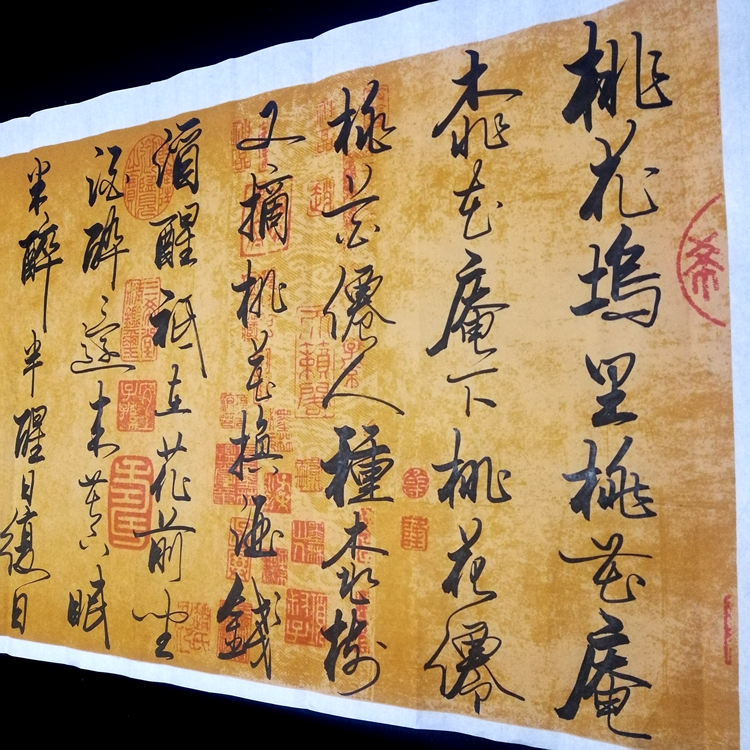 桃花塢里桃花庵
桃花庵下桃花僊
桃花僊人種桃樹
又摘桃花換酒錢
酒醒祗在花前坐
酒醉還來花下眠
半醉半醒日復日
天籟閣